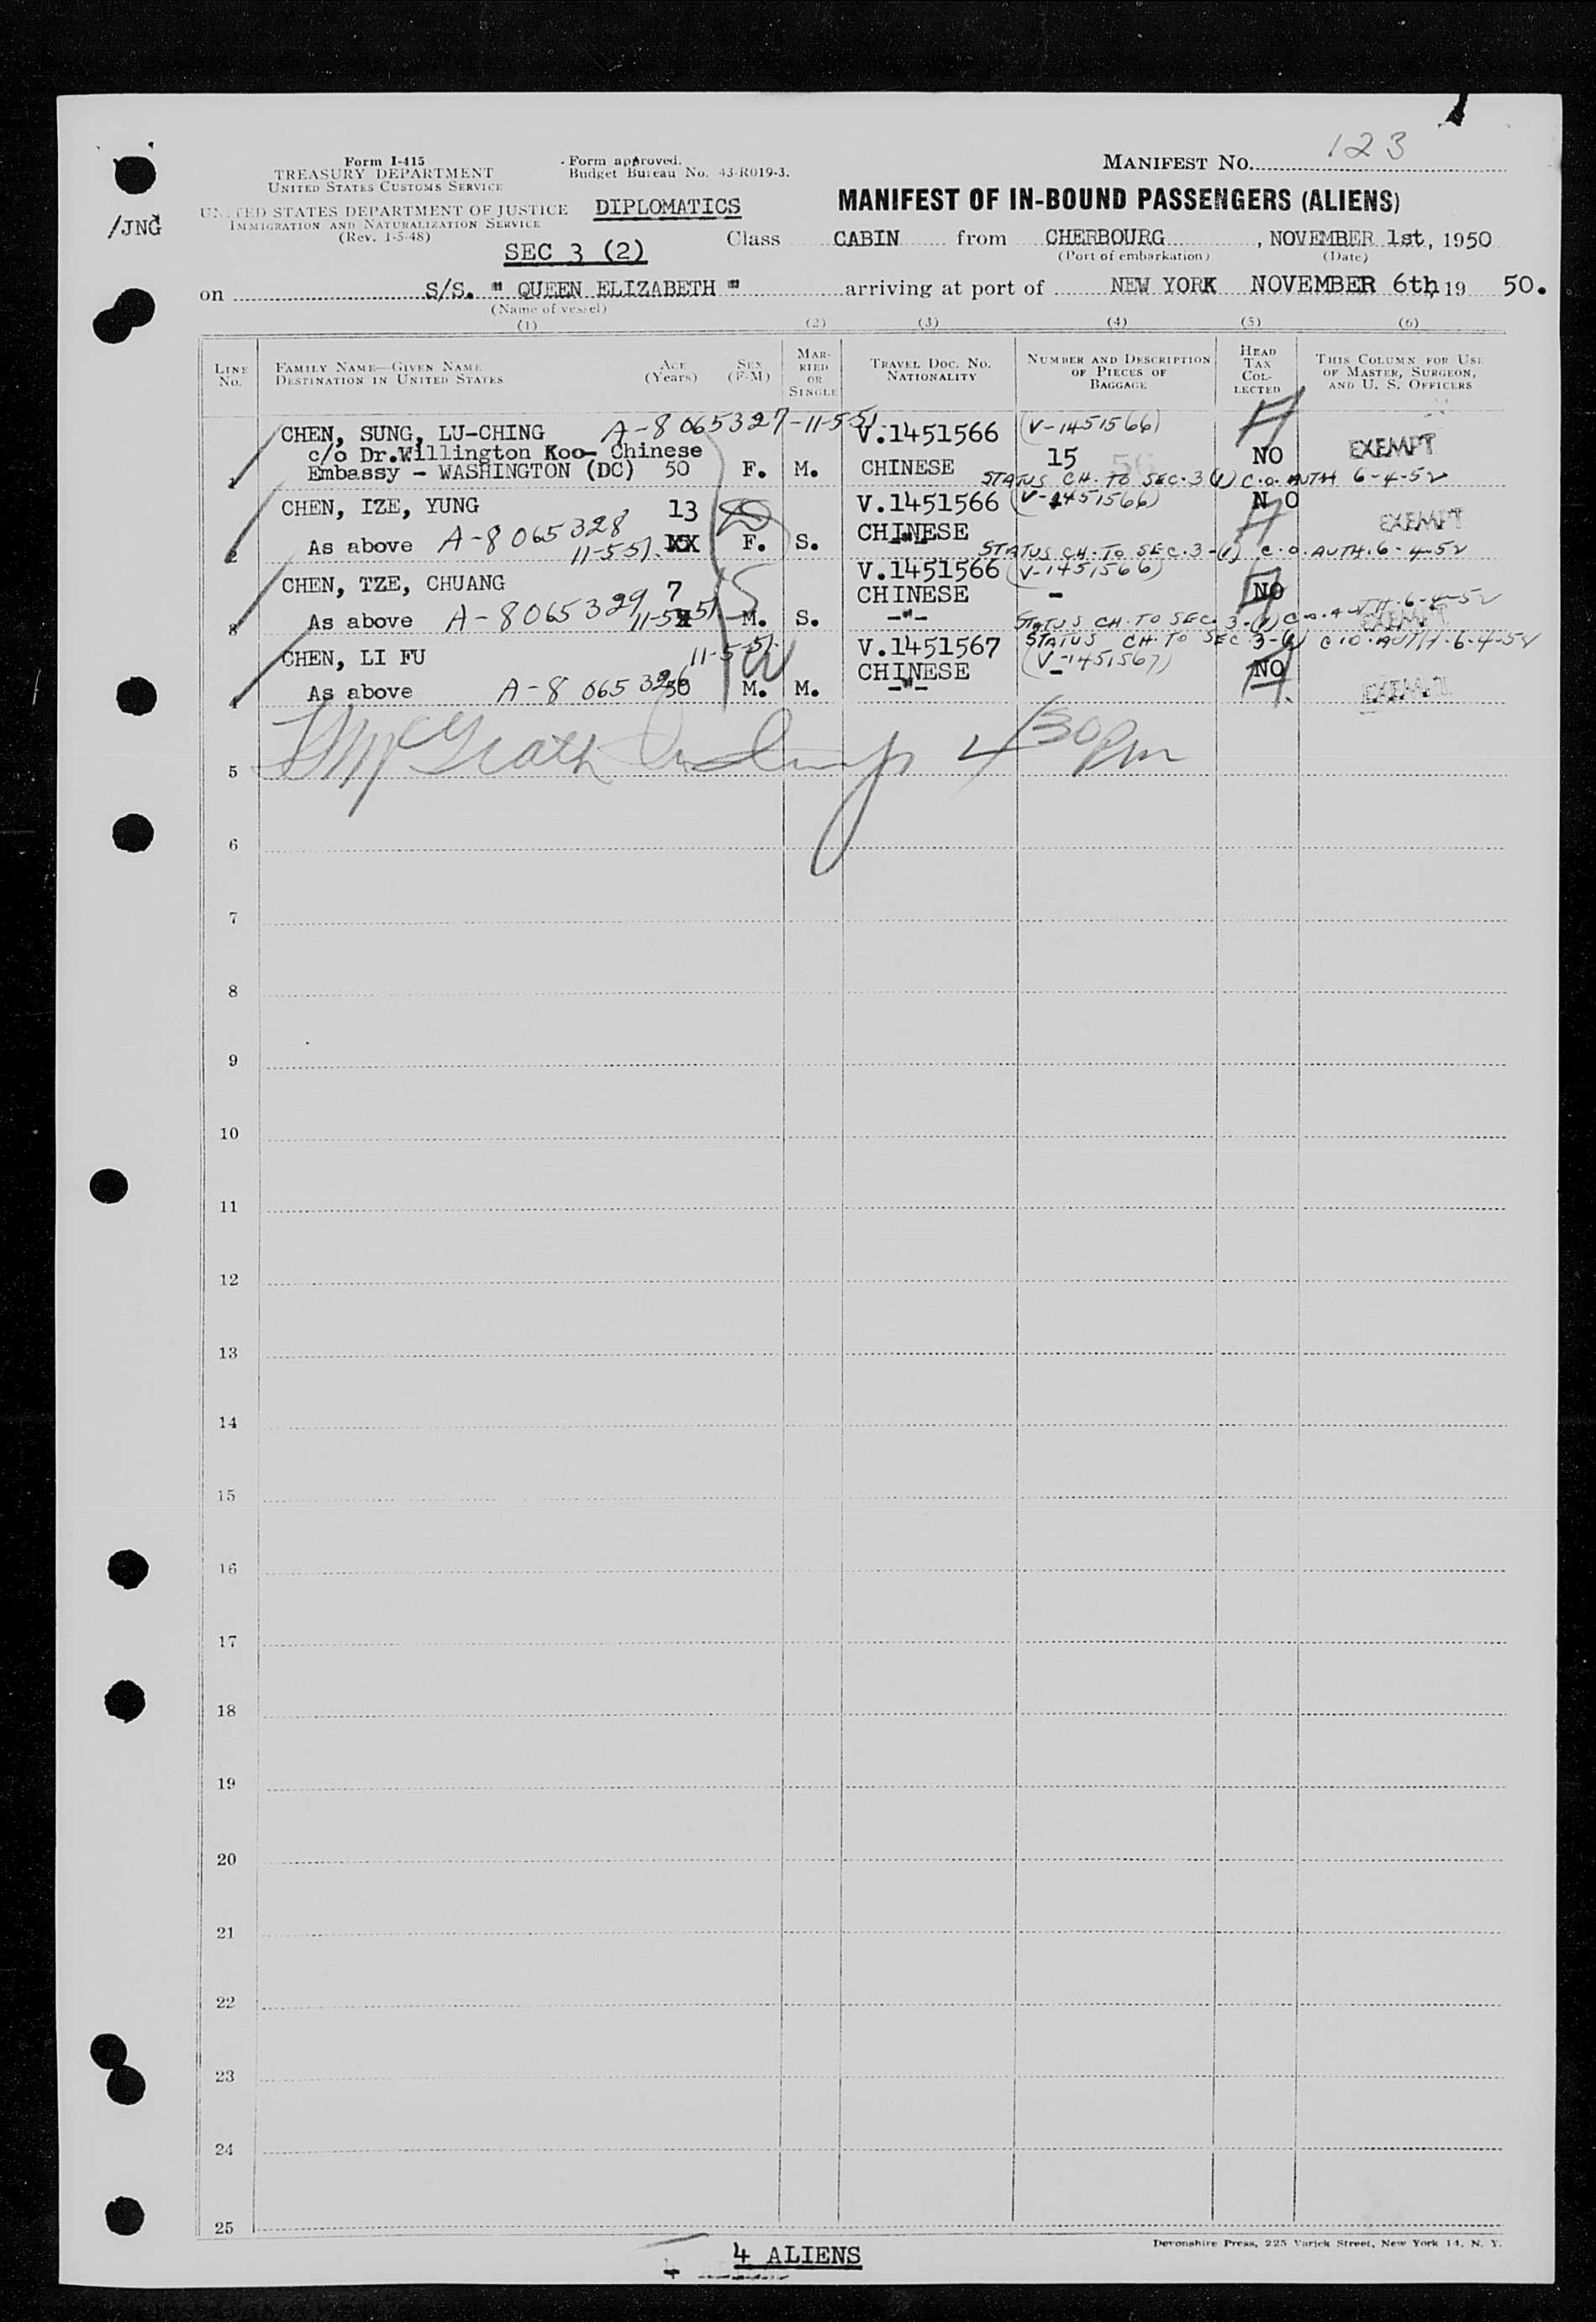 123
Form I-415
TREASURY DEPARTMENT
UNITED STATES CUSTOMS SERVICE
Form approved.
Budget Bureau No. 43-R019-3.
MANIFEST NO.
UNITED STATES DEPARTMENT OF JUSTICE
IMMIGRATION AND NATURALIZATION SERVICE
(Rev. 1-5-48)
DIPLOMATICS
MANIFEST OF IN-BOUND PASSENGERS (ALIENS)
/JNG
SEC 3 (2)
Class CABIN from CHERBOURG, NOVEMBER 1st, 1950
(Port of embarkation) (Date)
on S/S. " QUEEN ELIZABETH " arriving at port of NEW YORK NOVEMBER 6th, 19 50.
(Name of vessel)
(1) (2) (3) (4) (5) (6)
LINE NO.
FAMILY NAME—GIVEN NAME
DESTINATION IN UNITED STATES
AGE (Years)
SEX (F-M)
MARRIED OR SINGLE
TRAVEL DOC. NO.
NATIONALITY
NUMBER AND DESCRIPTION OF PIECES OF BAGGAGE
HEAD TAX COLLECTED
THIS COLUMN FOR USE OF MASTER, SURGEON, AND U. S. OFFICERS
CHEN, SUNG, LU-CHING A-8 065327-11-5-51 V.1451566 (V-1451566)
c/o Dr.Willington Koo- Chinese
1 Embassy - WASHINGTON (DC) 50 F. M. CHINESE 15 56 NO EXEMPT
STATUS CH. TO SEC. 3(1) C.O. AUTH 6-4-52
CHEN, IZE, YUNG 13 V.1451566 (V-1451566) N O
2 As above A-8 065328 11-5-51. XX F. S. CHINESE -"- EXEMPT
STATUS CH. TO SEC. 3-(1) C.O. AUTH. 6-4-52
CHEN, TZE, CHUANG 7 V.1451566 (V-1451566)
CHINESE - NO
3 As above A-8 065329 11-5-51 M. S. -"- EXEMPT
STATUS CH. TO SEC. 3-(1) C.O. AUTH. 6-4-52
STATUS CH. TO SEC. 3-(1) C.O. AUTH. 6-4-52
CHEN, LI FU 11-5-51. V.1451567 (V-1451567)
CHINESE - NO
4 As above A-8 065326 50 M. M. -"- EXEMPT
McGrath 4 30 pm
5
6
7
8
9
10
11
12
13
14
15
16
17
18
19
20
21
22
23
24
25
Devonshire Press, 225 Varick Street, New York 14, N. Y.
4 4 ALIENS